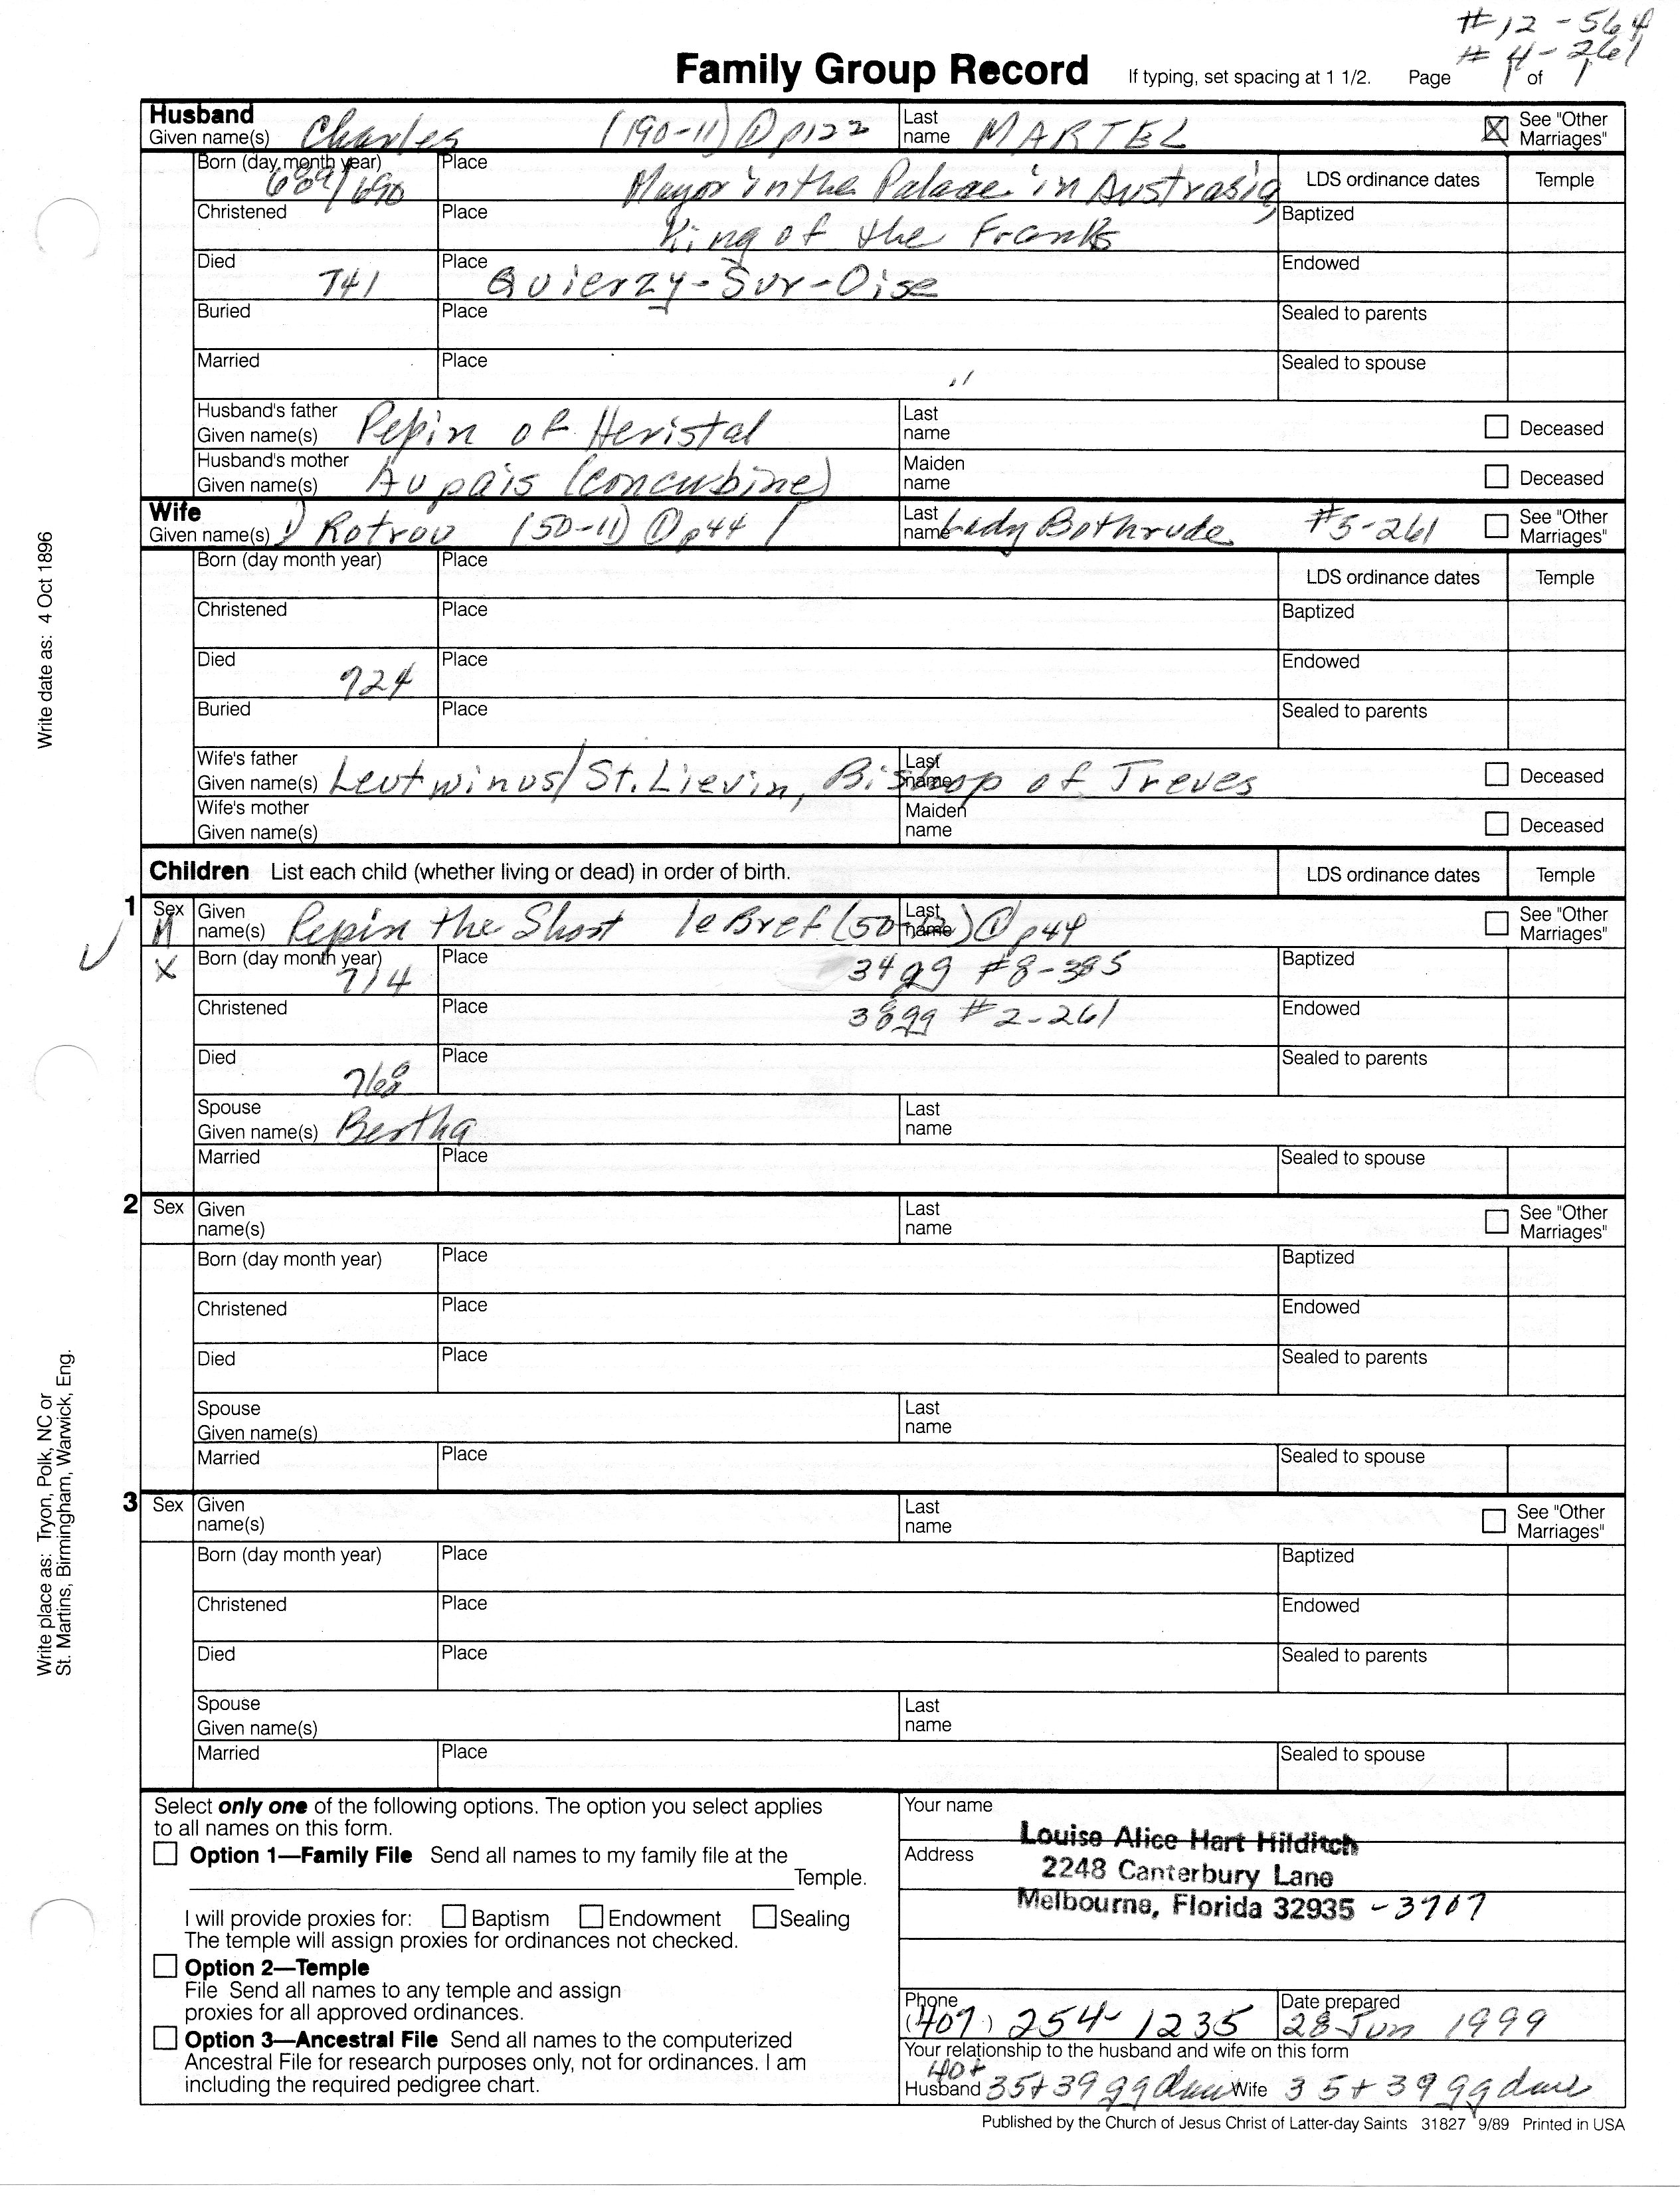 #12-564
#4-261
Family Group Record If typing, set spacing at 1 1/2. Page 1 of 1
Husband
Given name(s) Charles (190-11) ① p122 Last name MARTEL See "Other Marriages"
Born (day month year) 689/690 Place Mayor in the Palace in Austrasia, LDS ordinance dates Temple
Christened Place King of the Franks Baptized
Died 741 Place Quierzy-Sur-Oise Endowed
Buried Place Sealed to parents
Married Place Sealed to spouse
Husband's father Given name(s) Pepin of Heristal Last name Deceased
Husband's mother Given name(s) Aupais (concubine) Maiden name Deceased
Wife
Given name(s) 1) Rotrou (50-11) ① p44 / Last name Lady Bothrude #5-261 See "Other Marriages"
Born (day month year) Place LDS ordinance dates Temple
Christened Place Baptized
Died 724 Place Endowed
Buried Place Sealed to parents
Wife's father Given name(s) Leutwinus/St. Lievin, Bishop of Treves Last name Deceased
Wife's mother Given name(s) Maiden name Deceased
Children List each child (whether living or dead) in order of birth. LDS ordinance dates Temple
1 Sex M Given name(s) Pepin the Short le Bref (50-12) ① p44 Last name See "Other Marriages"
X Born (day month year) 714 Place 34gg #8-385 Baptized
Christened Place 38gg #2-261 Endowed
Died 768 Place Sealed to parents
Spouse Given name(s) Bertha Last name
Married Place Sealed to spouse
2 Sex Given name(s) Last name See "Other Marriages"
Born (day month year) Place Baptized
Christened Place Endowed
Died Place Sealed to parents
Spouse Given name(s) Last name
Married Place Sealed to spouse
3 Sex Given name(s) Last name See "Other Marriages"
Born (day month year) Place Baptized
Christened Place Endowed
Died Place Sealed to parents
Spouse Given name(s) Last name
Married Place Sealed to spouse
Write date as: 4 Oct 1896
Write place as: Tryon, Polk, NC or
St. Martins, Birmingham, Warwick, Eng.
Select only one of the following options. The option you select applies
to all names on this form.
Option 1—Family File Send all names to my family file at the
Temple.
I will provide proxies for: Baptism Endowment Sealing
The temple will assign proxies for ordinances not checked.
Option 2—Temple
File Send all names to any temple and assign
proxies for all approved ordinances.
Option 3—Ancestral File Send all names to the computerized
Ancestral File for research purposes only, not for ordinances. I am
including the required pedigree chart.
Your name Louise Alice Hart Hilditch
Address 2248 Canterbury Lane
Melbourne, Florida 32935 -3707
Phone (407) 254-1235 Date prepared 28 Jun 1999
Your relationship to the husband and wife on this form
40+
Husband 35+39 gg dau Wife 35+39 gg dau
Published by the Church of Jesus Christ of Latter-day Saints 31827 9/89 Printed in USA